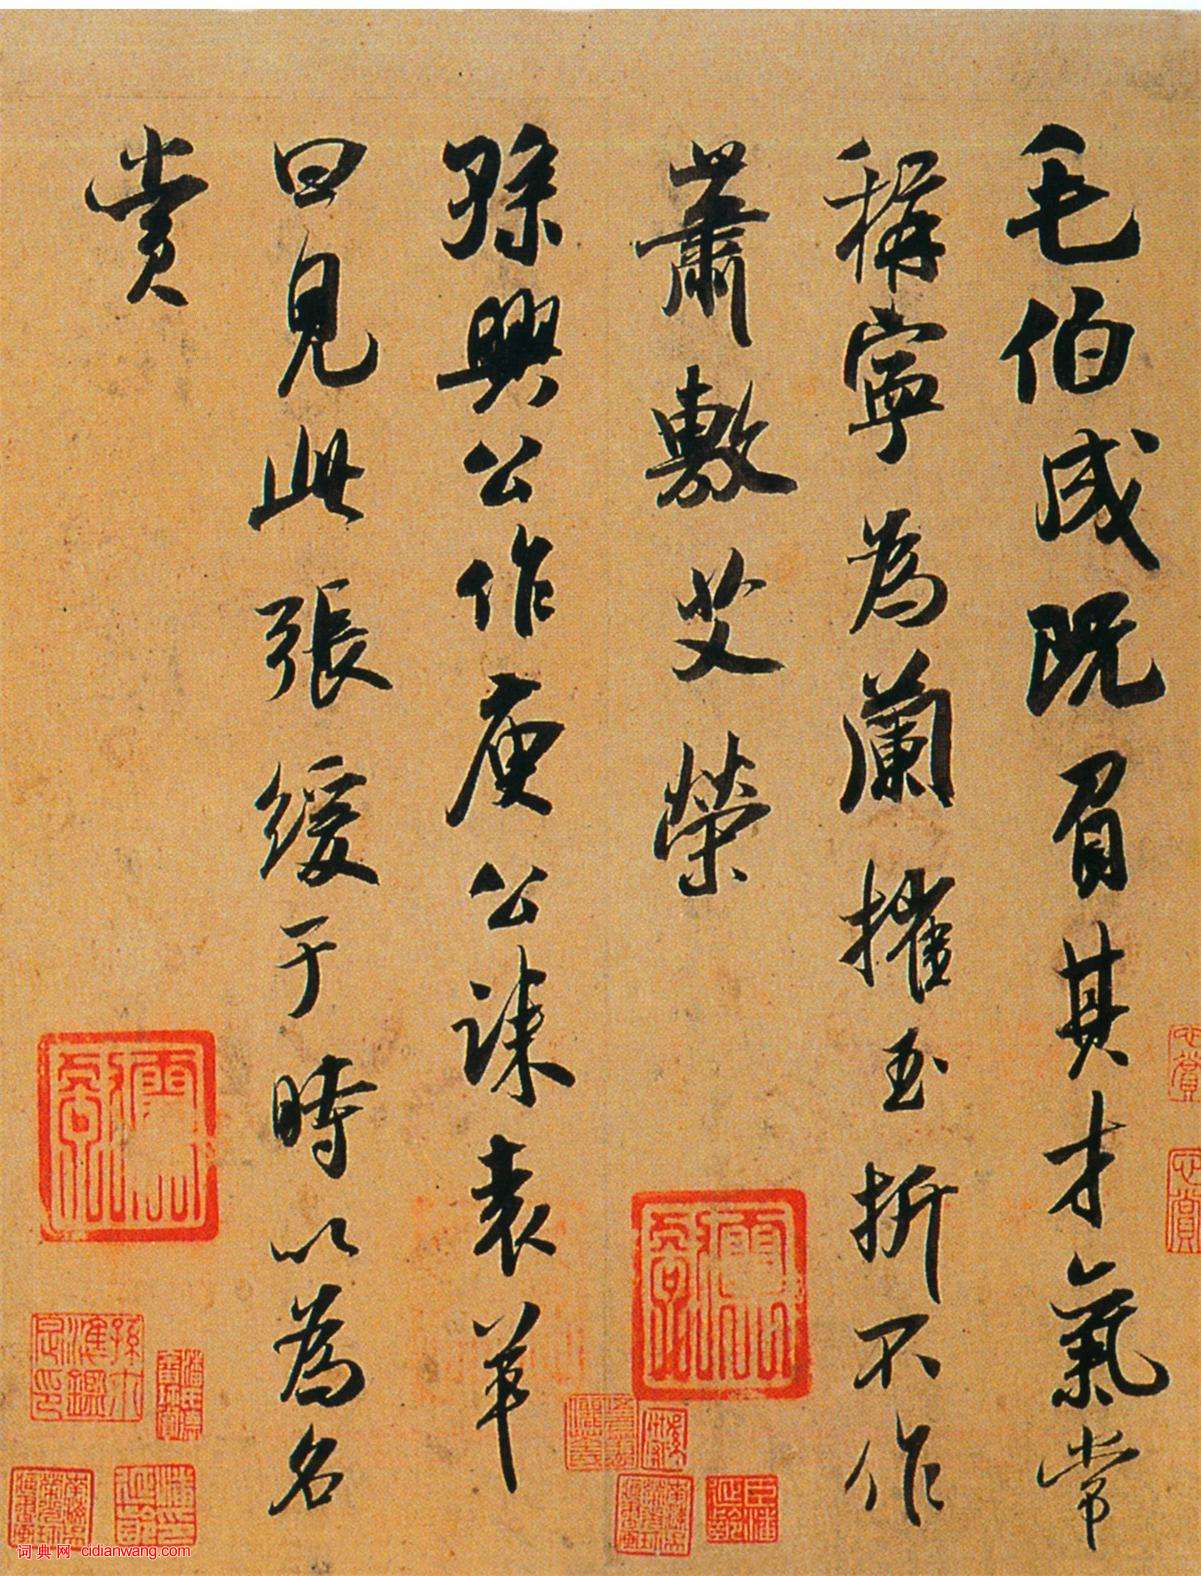 毛伯成既負其才氣常
稱寧為蘭摧玉折不作
蕭敷艾榮
孫興公作庾公誄袁羊
曰見此張緩于時以為名
賞
词典网 cidianwang.com